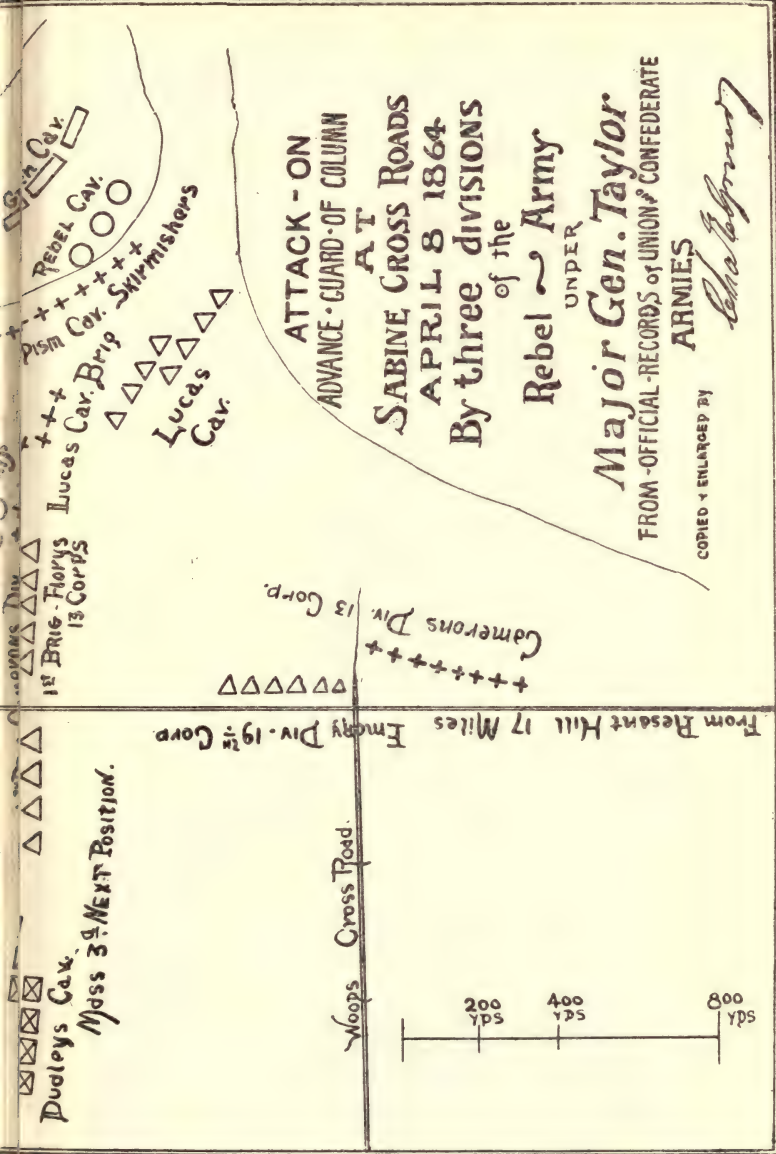 ATTACK - ON
ADVANCE·GUARD·OF COLUMN
AT
SABINE CROSS ROADS
APRIL 8 1864
By three divisions
of the
Rebel ~ Army
UNDER
Major Gen. Taylor
FROM-OFFICIAL-RECORDS of UNION & CONFEDERATE
ARMIES
COPIED & ENLARGED BY
Cav.
REBEL CAV.
Pism Cav. Skirmishers
Lucas Cav. Brig
Lucas
Cav.
1st BRIG-Florys
13 CORPS
Camerons Div. 13 Corp.
Emery Div. 19TH Corp
From Plesant Hill 17 Miles
Dudleys Cav.
Mass 3d NEXT POSITION.
Woops Cross Road.
200
YDS
400
YDS
800
YDS